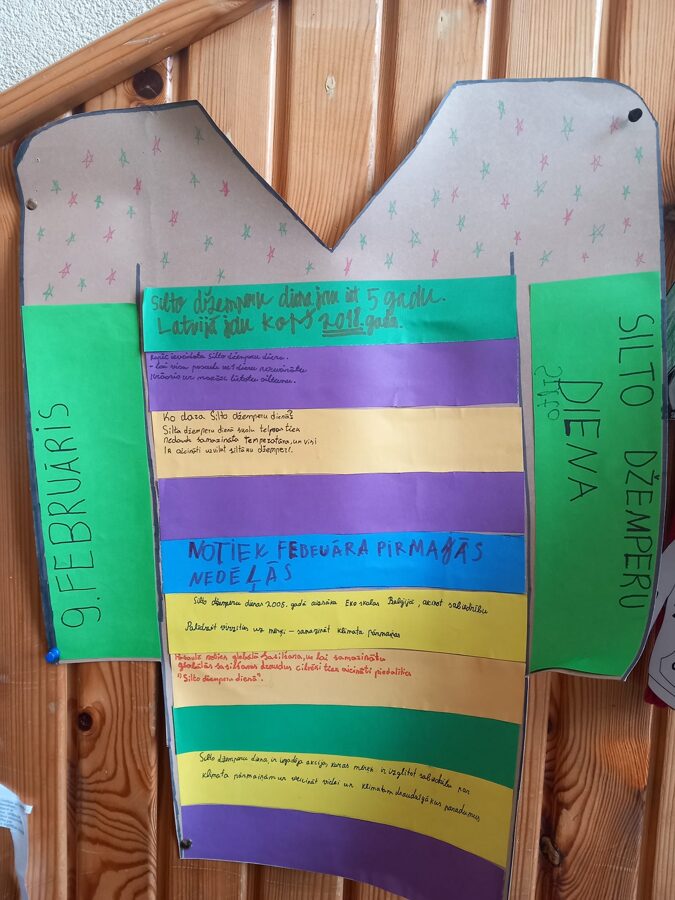 9. FEBRUĀRIS
Silto džemperu diena jau ir 5 gadu.
Latvijā jau kopš 2018. gada.
Silto džemperu diena.
- lai visa pasaule
Ko dara Silto džemperu dienā?
Silto džemperu dienā skolu telpās tiek
nedaudz samazināta temperatūra, un visi
IR aicināti uzvilkt siltāku džemperi.
NOTIEK FEBEUĀRA PIRMAJĀS
NEDĒĻĀS
Silto džemperu dienas 2005. gadā aizsāka Eko skolas Beļģijā, aicinot sabiedrību
Palīdzēt virzīties uz mērķi - samazināt klimata pārmaiņas
Pasaulē notiek globālā sasilšana, un lai samazinātu
globālās sasilšanas draudus cilvēki tiek aicināti piedalīties
"Silto džemperu dienā".
Silto džemperu diena, ir ikgadēja akcija, kuras mērķis ir izglītot sabiedrību par
klimata pārmaiņām un veicināt videi un klimatam draudzīgākus paradumus
SILTO DŽEMPERU
Silto
DIENA